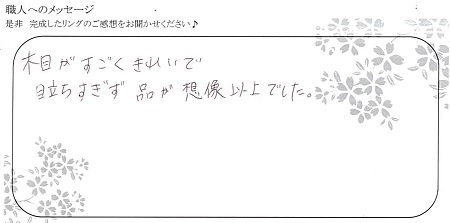 職人へのメッセージ
是非 完成したリングのご感想をお聞かせください♪
木目がすごくきれいで
目立ちすぎず 品が 想像以上でした。